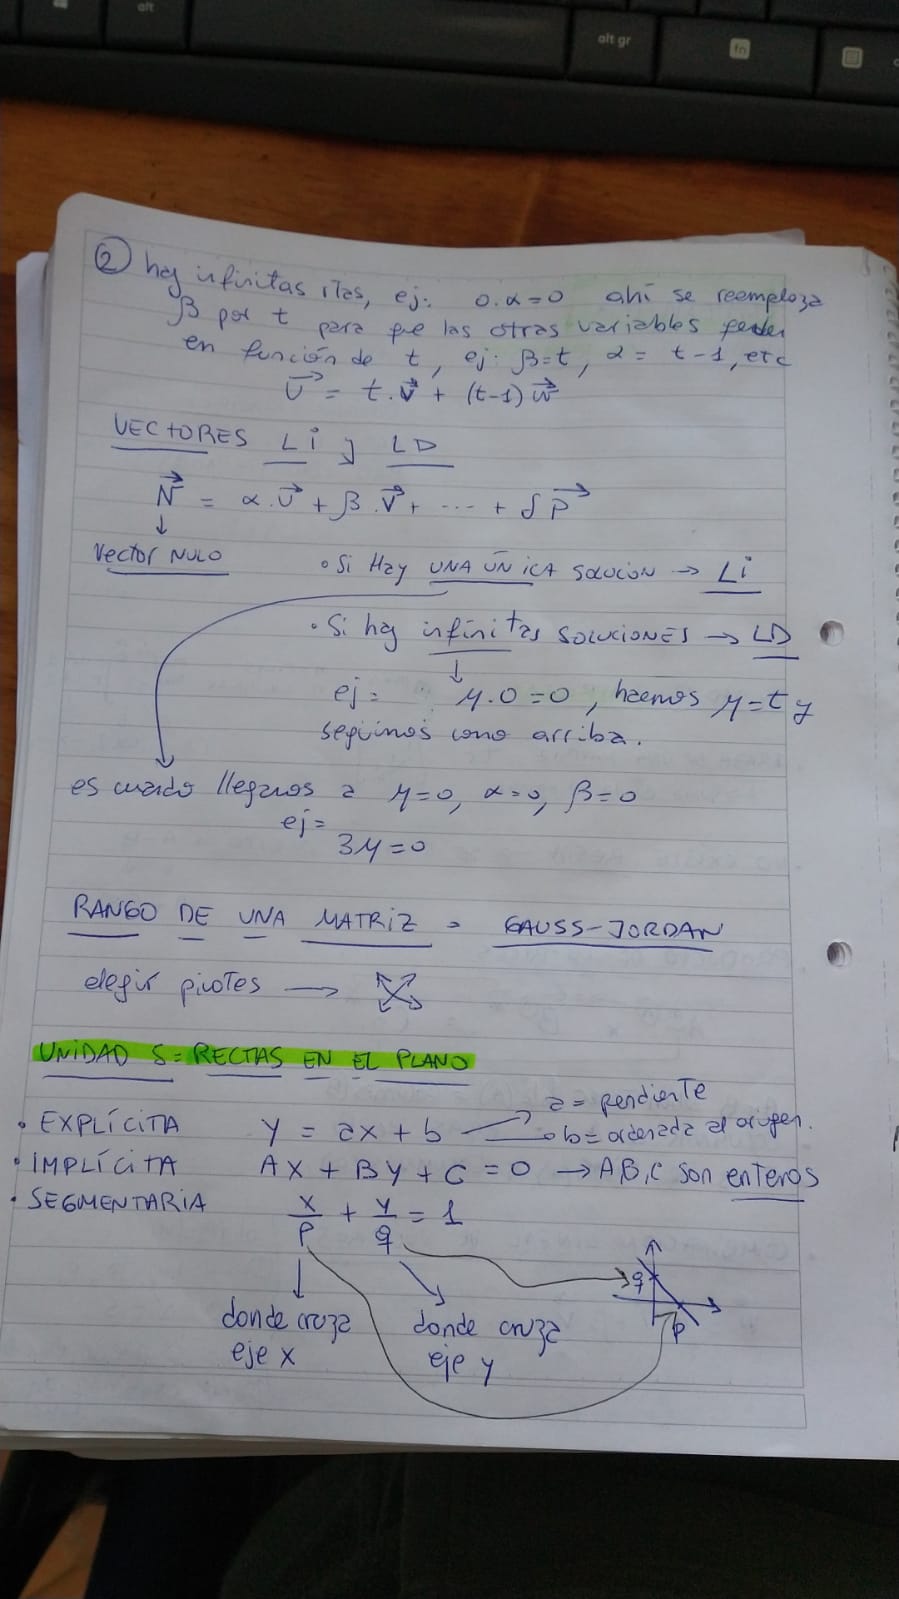 alt
alt gr
fn
② hay infinitas rtas, ej: 0.α=0 ahí se reemplaza
β por t para que las otras variables queden
en función de t, ej: β=t, α= t-1, etc
U = t.V + (t-1) W
VECTORES Li y LD
N = α.U + β.V + ... + δP
↓
Vector NULO
• Si Hay UNA ÚNICA SOLUCIÓN → Li
• Si hay infinitas SOLUCIONES → LD
↓
ej: μ.0=0, hacemos μ=t y
seguimos como arriba.
es cuando llegamos a μ=0, α=0, β=0
ej=
3μ=0
RANGO DE UNA MATRIZ = GAUSS-JORDAN
elegir pivotes →
UNIDAD 5= RECTAS EN EL PLANO
• EXPLÍCITA y = ax + b a= pendiente
b= ordenada al origen.
• IMPLÍCITA Ax + By + C = 0 → A,B,C son enteros
• SEGMENTARIA x/p + y/q = 1
q
p
donde cruza
eje x
donde cruza
eje y